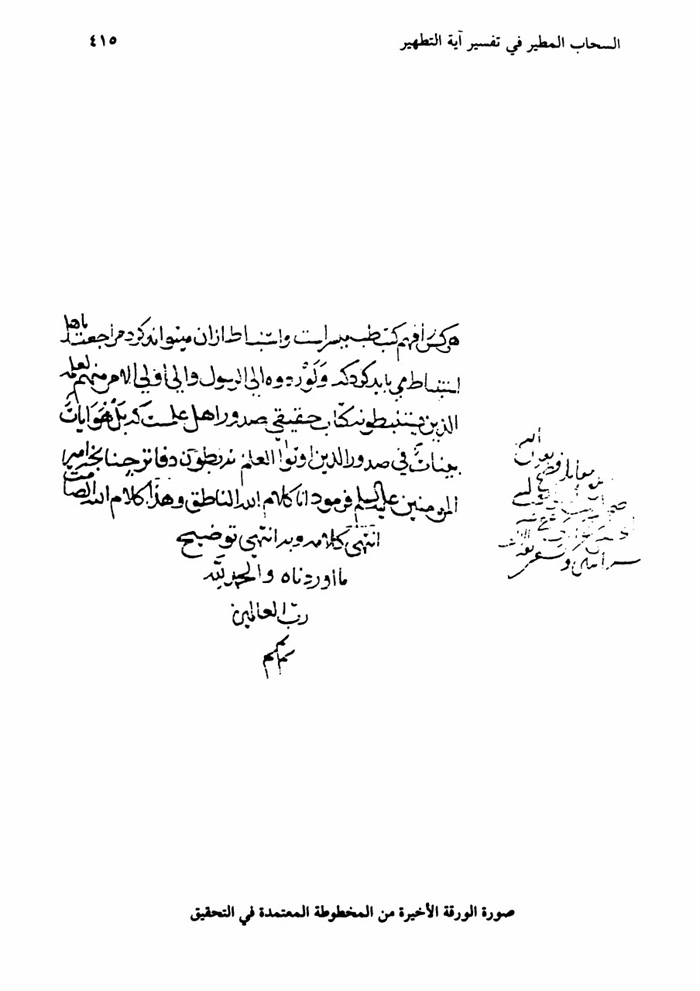 السحاب المطير في تفسير آية التطهير ٤١٥
هر كس را فهم كتب طب ميسر است واستنباط ازان ميتواند كرد مراجعت باهل
استنباط مي بايد كرد كه وَلَوْ رَدوه الى الرسول والى اولى الامر منهم لعلمه
الذين يستنبطونه كتاب حقيقي صدور اهل علمست كه بَلْ هُوَ اٰياتٌ
بيناتٌ في صدور الذين اوتوا العلم نه بطون دفاتر چنانچه امير
المؤمنين عليه السلم فرمود انا كلام الله الناطق وهذا كلام الله الصامت
انتهى كلامه وبه انتهى توضيح
ما اوردناه والحمد لله
ربّ العالمين
صورة الورقة الأخيرة من المخطوطة المعتمدة في التحقيق